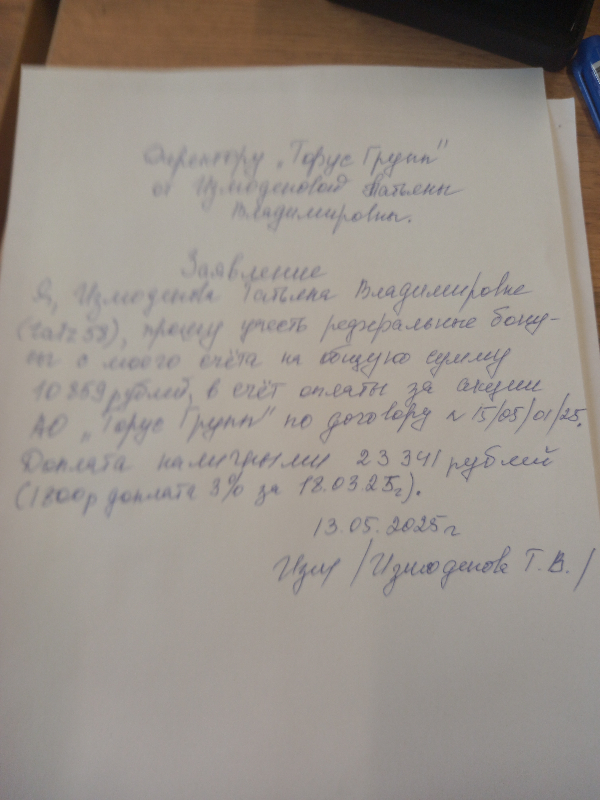 Директору „Торус Групп"
от Измоденовой Татьяны
Владимировны.
Заявление
Я, Измоденова Татьяна Владимировна
прошу учесть реферальные бону-
сы с моего счёта на общую сумму
10 859 рублей, в счёт оплаты за акции
АО „Торус Групп" по договору № 15/05/01/25.
Доплата наличными 23 341 рублей
(1800р доплата 3% за 18.03.25г).
13.05.2025г
Изм /Измоденова Т.В./